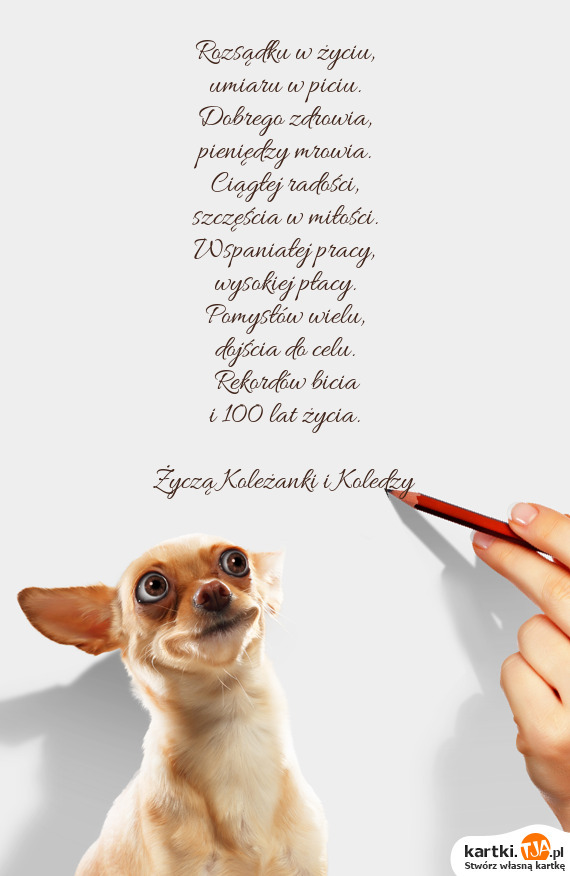 Rozsądku w życiu,
umiaru w piciu.
Dobrego zdrowia,
pieniędzy mrowia.
Ciągłej radości,
szczęścia w miłości.
Wspaniałej pracy,
wysokiej płacy.
Pomysłów wielu,
dojścia do celu.
Rekordów bicia
i 100 lat życia.
Życzą Koleżanki i Koledzy
kartki.TJA.pl
Stwórz własną kartkę